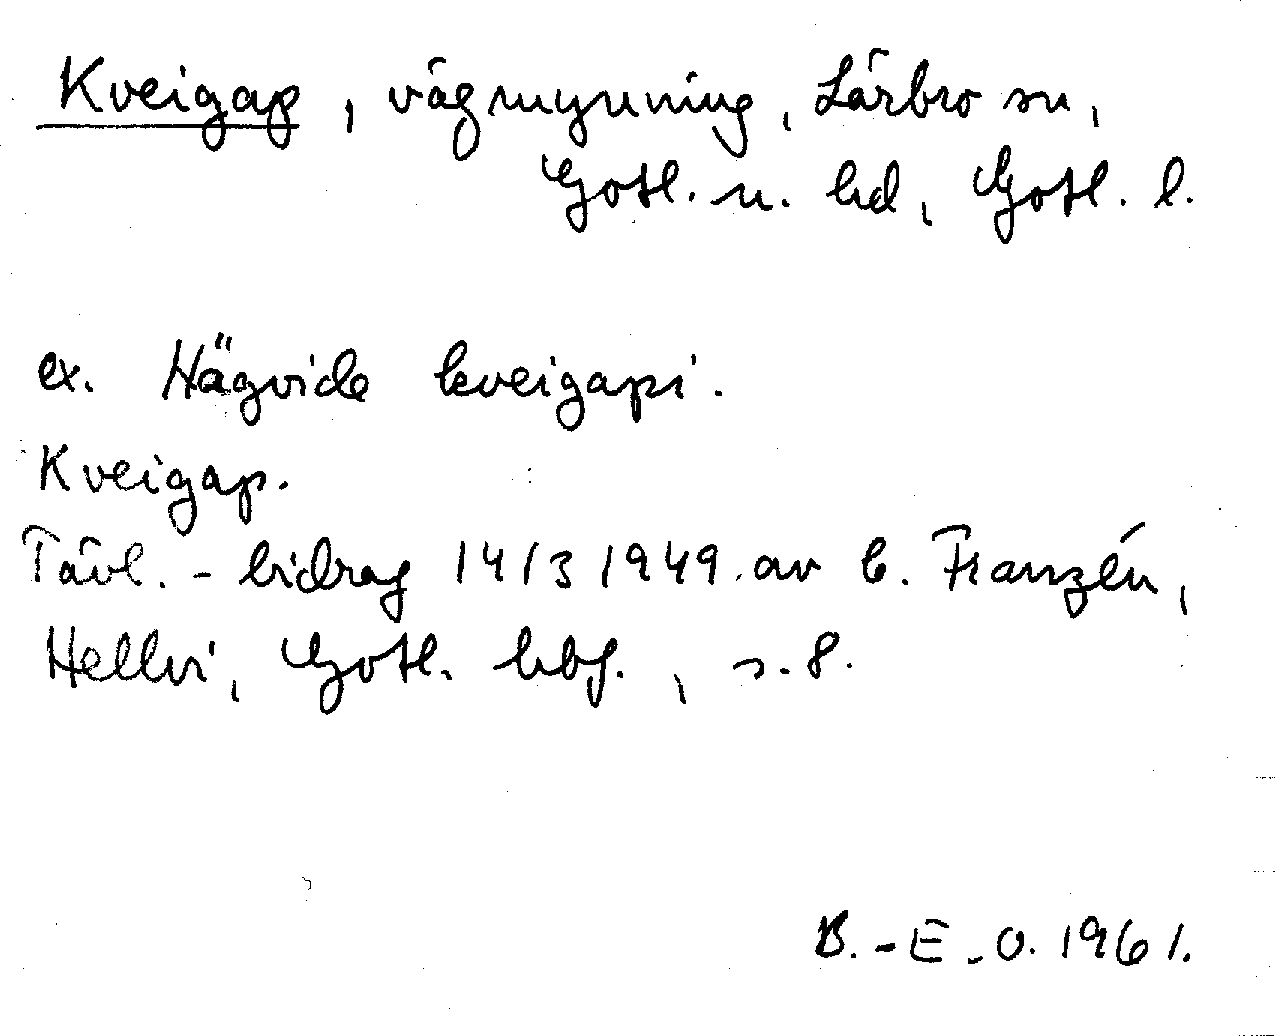 Kveigap, vägmynning, Lärbro sn,
Gotl. n. hd, Gotl. l.
ex. Hägvide kveigapi.
Kveigap.
Tävl.-bidrag 14/3 1949. av C. Franzén,
Hellvi, Gotl. hbf., s. 8.
B.-E. O. 1961.